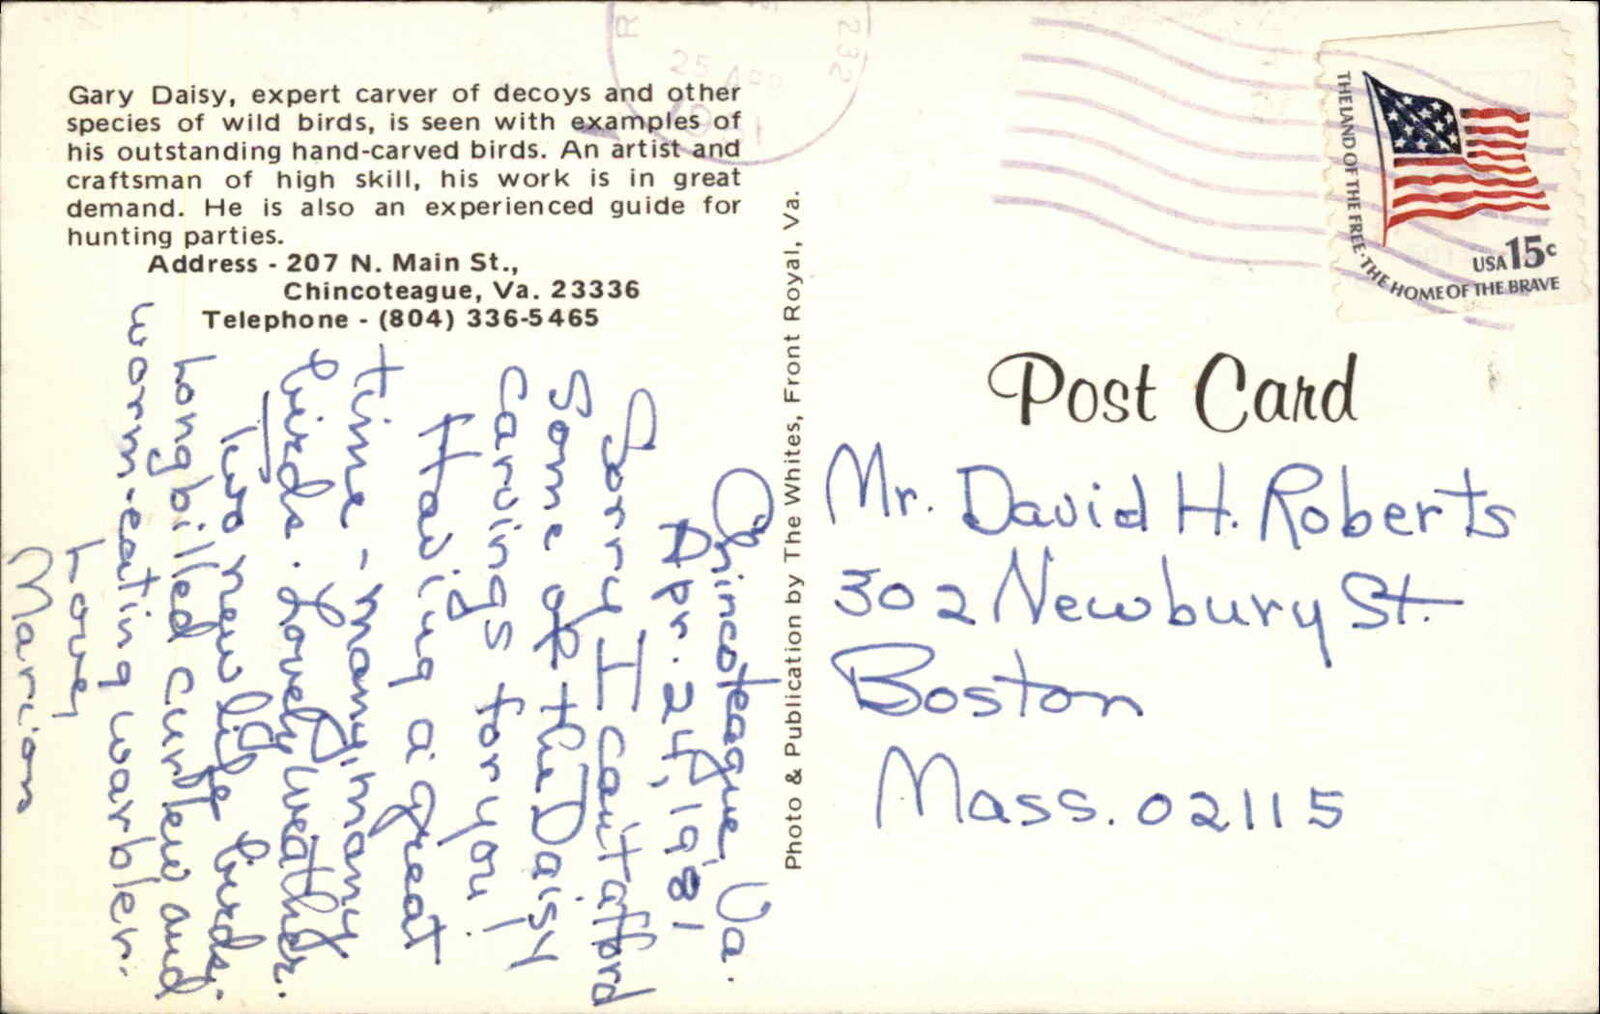 Gary Daisy, expert carver of decoys and other
species of wild birds, is seen with examples of
his outstanding hand-carved birds. An artist and
craftsman of high skill, his work is in great
demand. He is also an experienced guide for
hunting parties.
Address - 207 N. Main St.,
Chincoteague, Va. 23336
Telephone - (804) 336-5465
Chincoteague, Va.
Apr. 24, 1981
Sorry I can't afford
some of the Daisy
carvings for you!
Having a great
time - many, many
birds. Lovely weather.
Two new life birds.
Long billed curlew and
worm-eating warbler.
Love,
Marion
Photo & Publication by The Whites, Front Royal, Va.
25 APR
1981
232
THE LAND OF THE FREE · THE HOME OF THE BRAVE
USA 15c
Post Card
Mr. David H. Roberts
302 Newbury St.
Boston
Mass. 02115